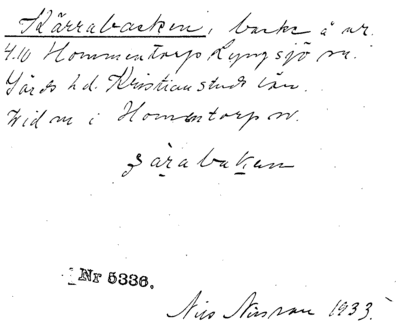 Kärrabacken, backe å nr.
4.10 Hommentorp Lyngsjö sn.
Gärds hd. Kristianstads län.
Hommentorp
Nr 5336.
Nils Nilsson 1933.